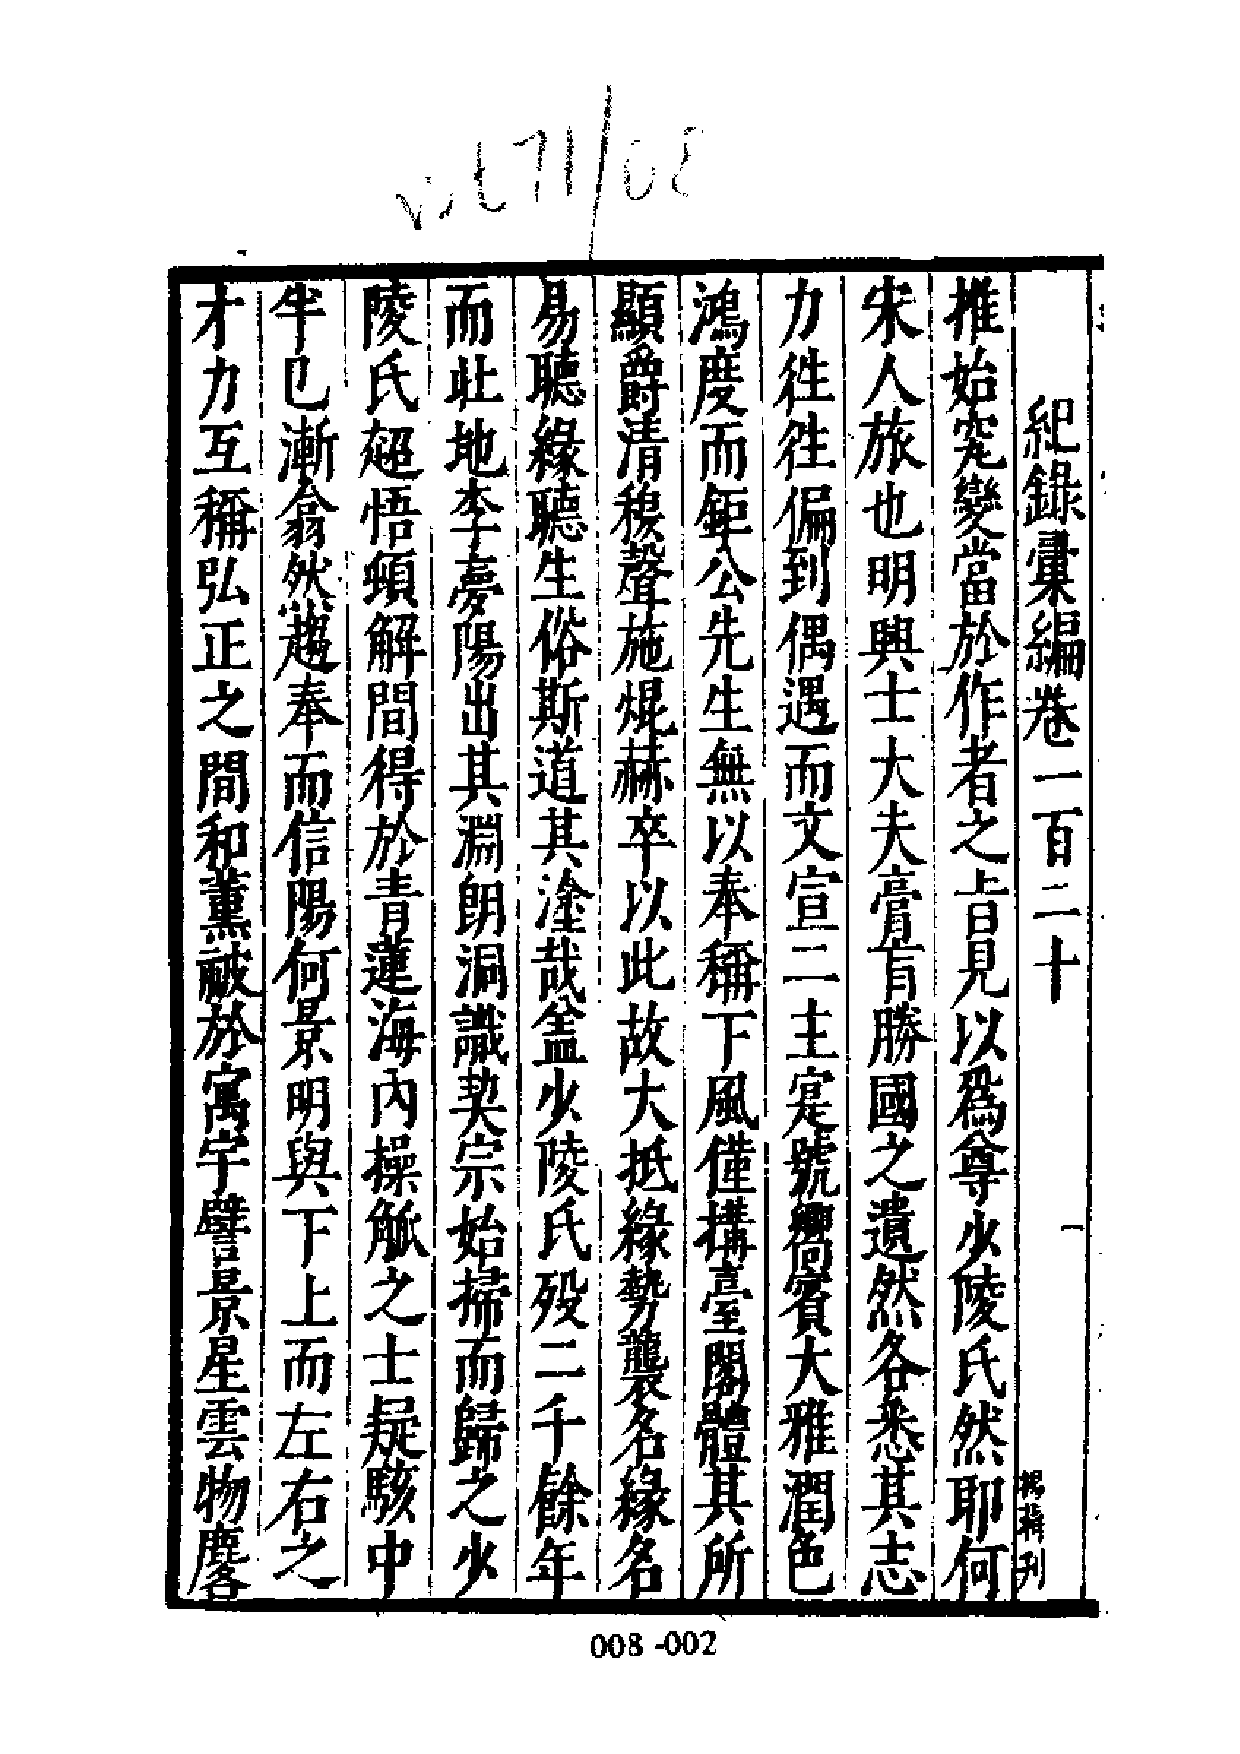 紀錄彙編卷一百二十
一
楊蔣刊
推始究變當於作者之旨見以爲尊少陵氏然耶何
宋人旅也明興士大夫膏肓勝國之遺然各悉其志
力徃徃偏到偶遇而文宣二主寔號嚮賓大雅潤色
鴻度而鉅公先生無以奉稱下風僅構臺閣體其所
顯爵清稷聲施焜赫卒以此故大抵緣勢襲名緣名
易聽緣聽生俗斯道其塗哉盖少陵氏殁二千餘年
而壯地李夢陽出其淵朗洞識契宗始掃而歸之少
陵氏超悟頓解間得於青蓮海內操觚之士疑駭中
半已漸翕然趨奉而信陽何景明與下上而左右之
才力互稱弘正之間和薰祓於寓宇譬景星雲物麐
008-002